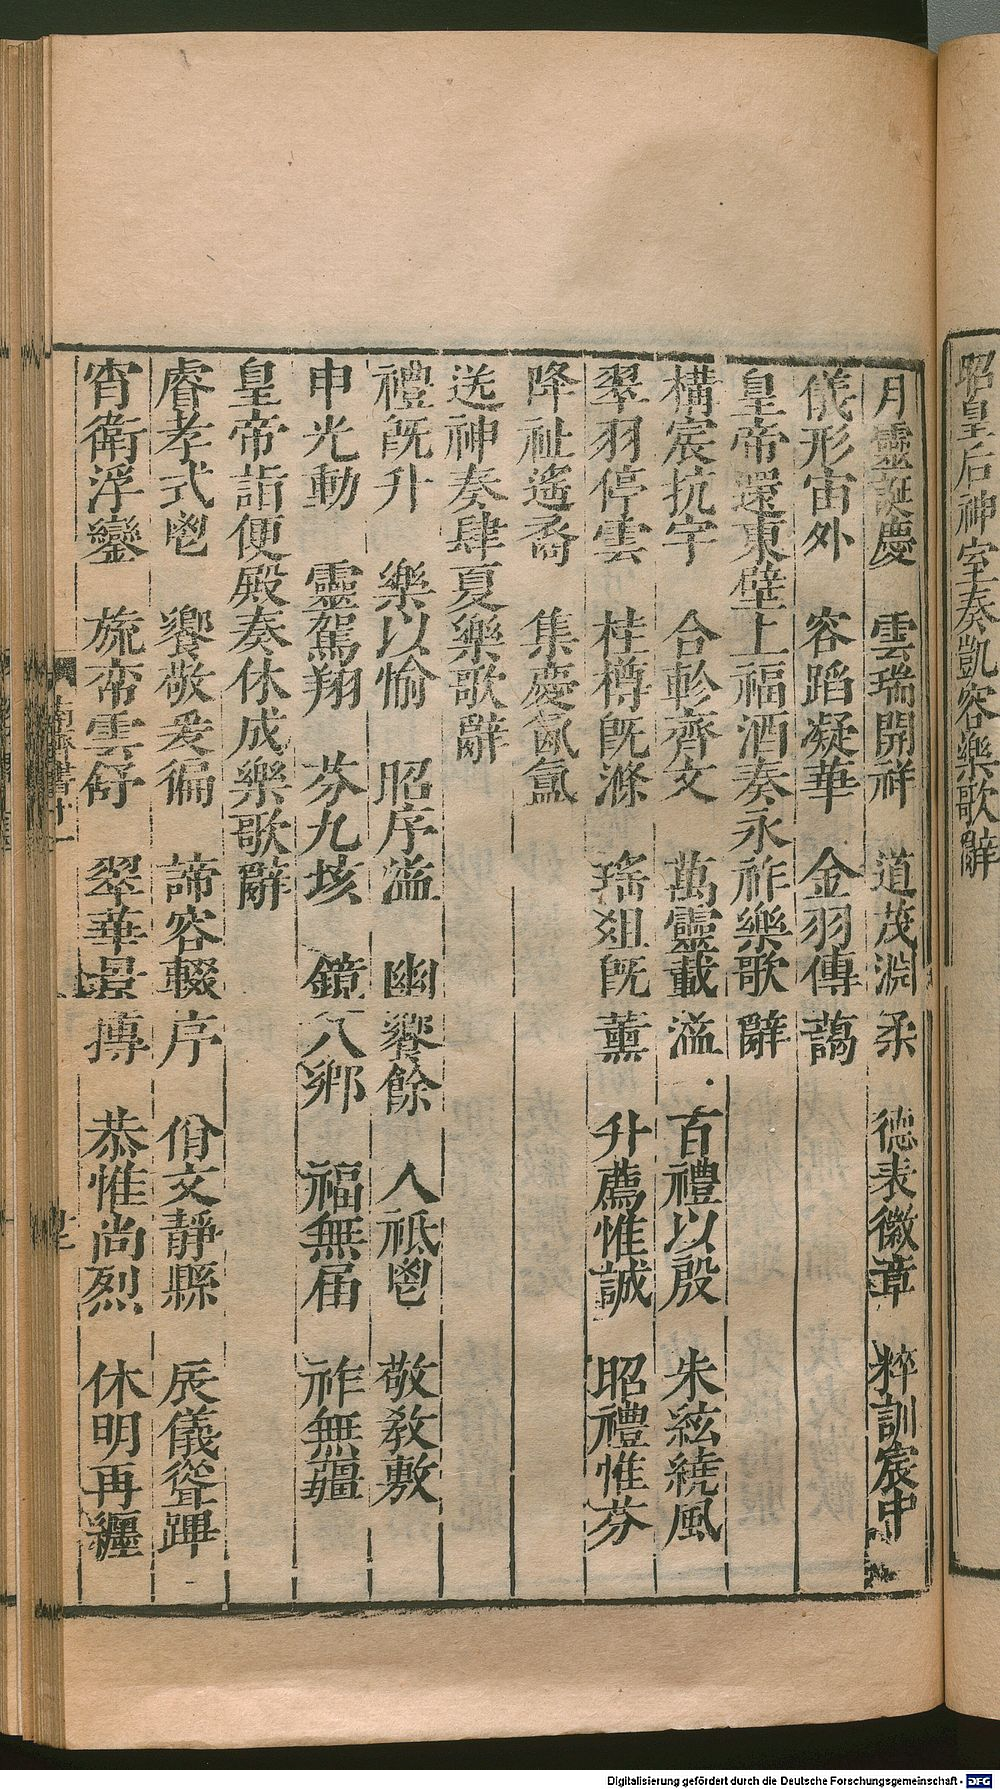 昭皇后神室奏凱容樂歌辭
月靈誕慶　雲瑞開祥　道茂淵柔　德表徽章　粹訓宸中
儀形宙外　容蹈凝華　金羽傳藹
皇帝還東壁上福酒奏永祚樂歌辭
構宸抗宇　合軫齊文　萬靈載溢　百禮以殷　朱絃繞風
翠羽停雲　桂樽旣滌　瑤俎旣薰　升薦惟誠　昭禮惟芬
降祉遙裔　集慶氤氳
送神奏肆夏樂歌辭
禮旣升　樂以愉　昭序溢　幽饗餘　人祗鬯　敬敎敷
申光動　靈駕翔　芬九垓　鏡八鄉　福無届　祚無疆
皇帝詣便殿奏休成樂歌辭
睿孝式鬯　饗敬爰徧　諦容輟序　佾文靜縣　辰儀聳蹕
宵衛浮鑾　旒帟雲舒　翠華景摶　恭惟尚烈　休明再纏
南齊書十一
Digitalisierung gefördert durch die Deutsche Forschungsgemeinschaft - DFG